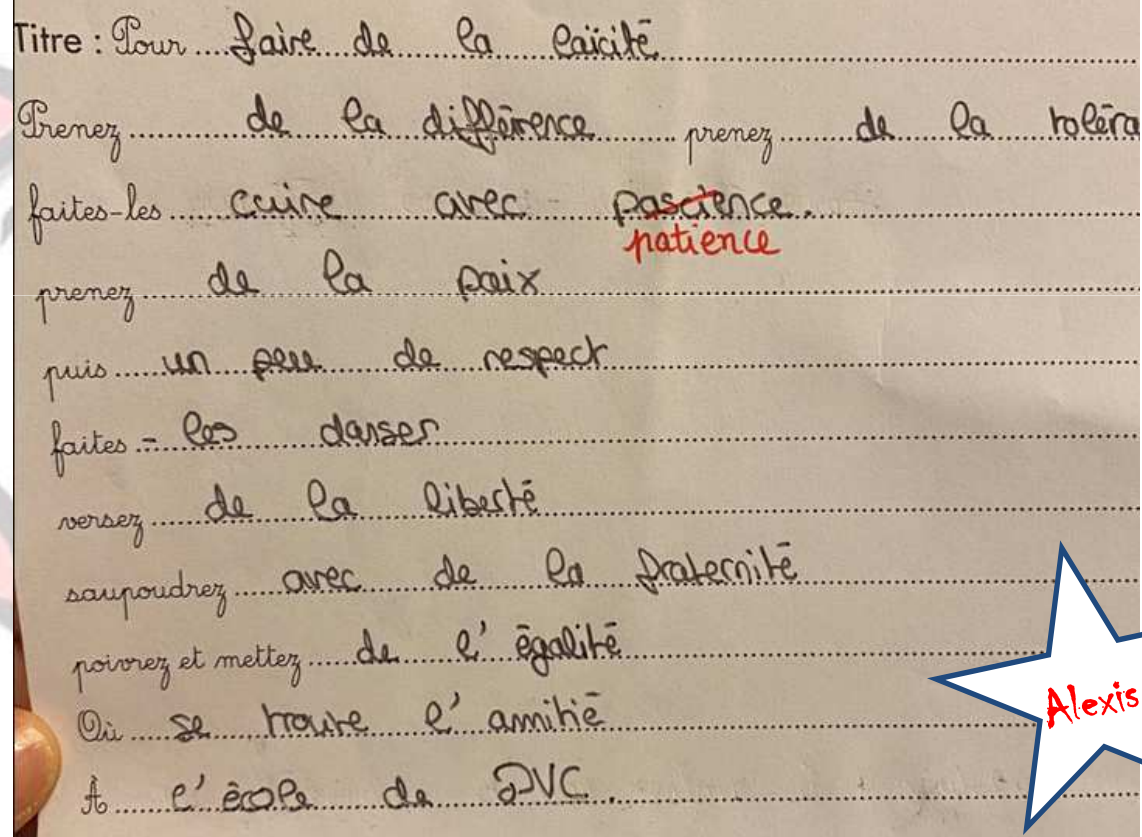 Titre : Pour faire de la laïcité
Prenez de la différence prenez de la toléra
faites-les cuire avec pascience.
patience
prenez de la paix
puis un peu de respect
faites-les danser
versez de la liberté
saupoudrez avec de la fraternité
poivrez et mettez de l'égalité
Où se trouve l'amitié
Alexis
À l'école de DVC